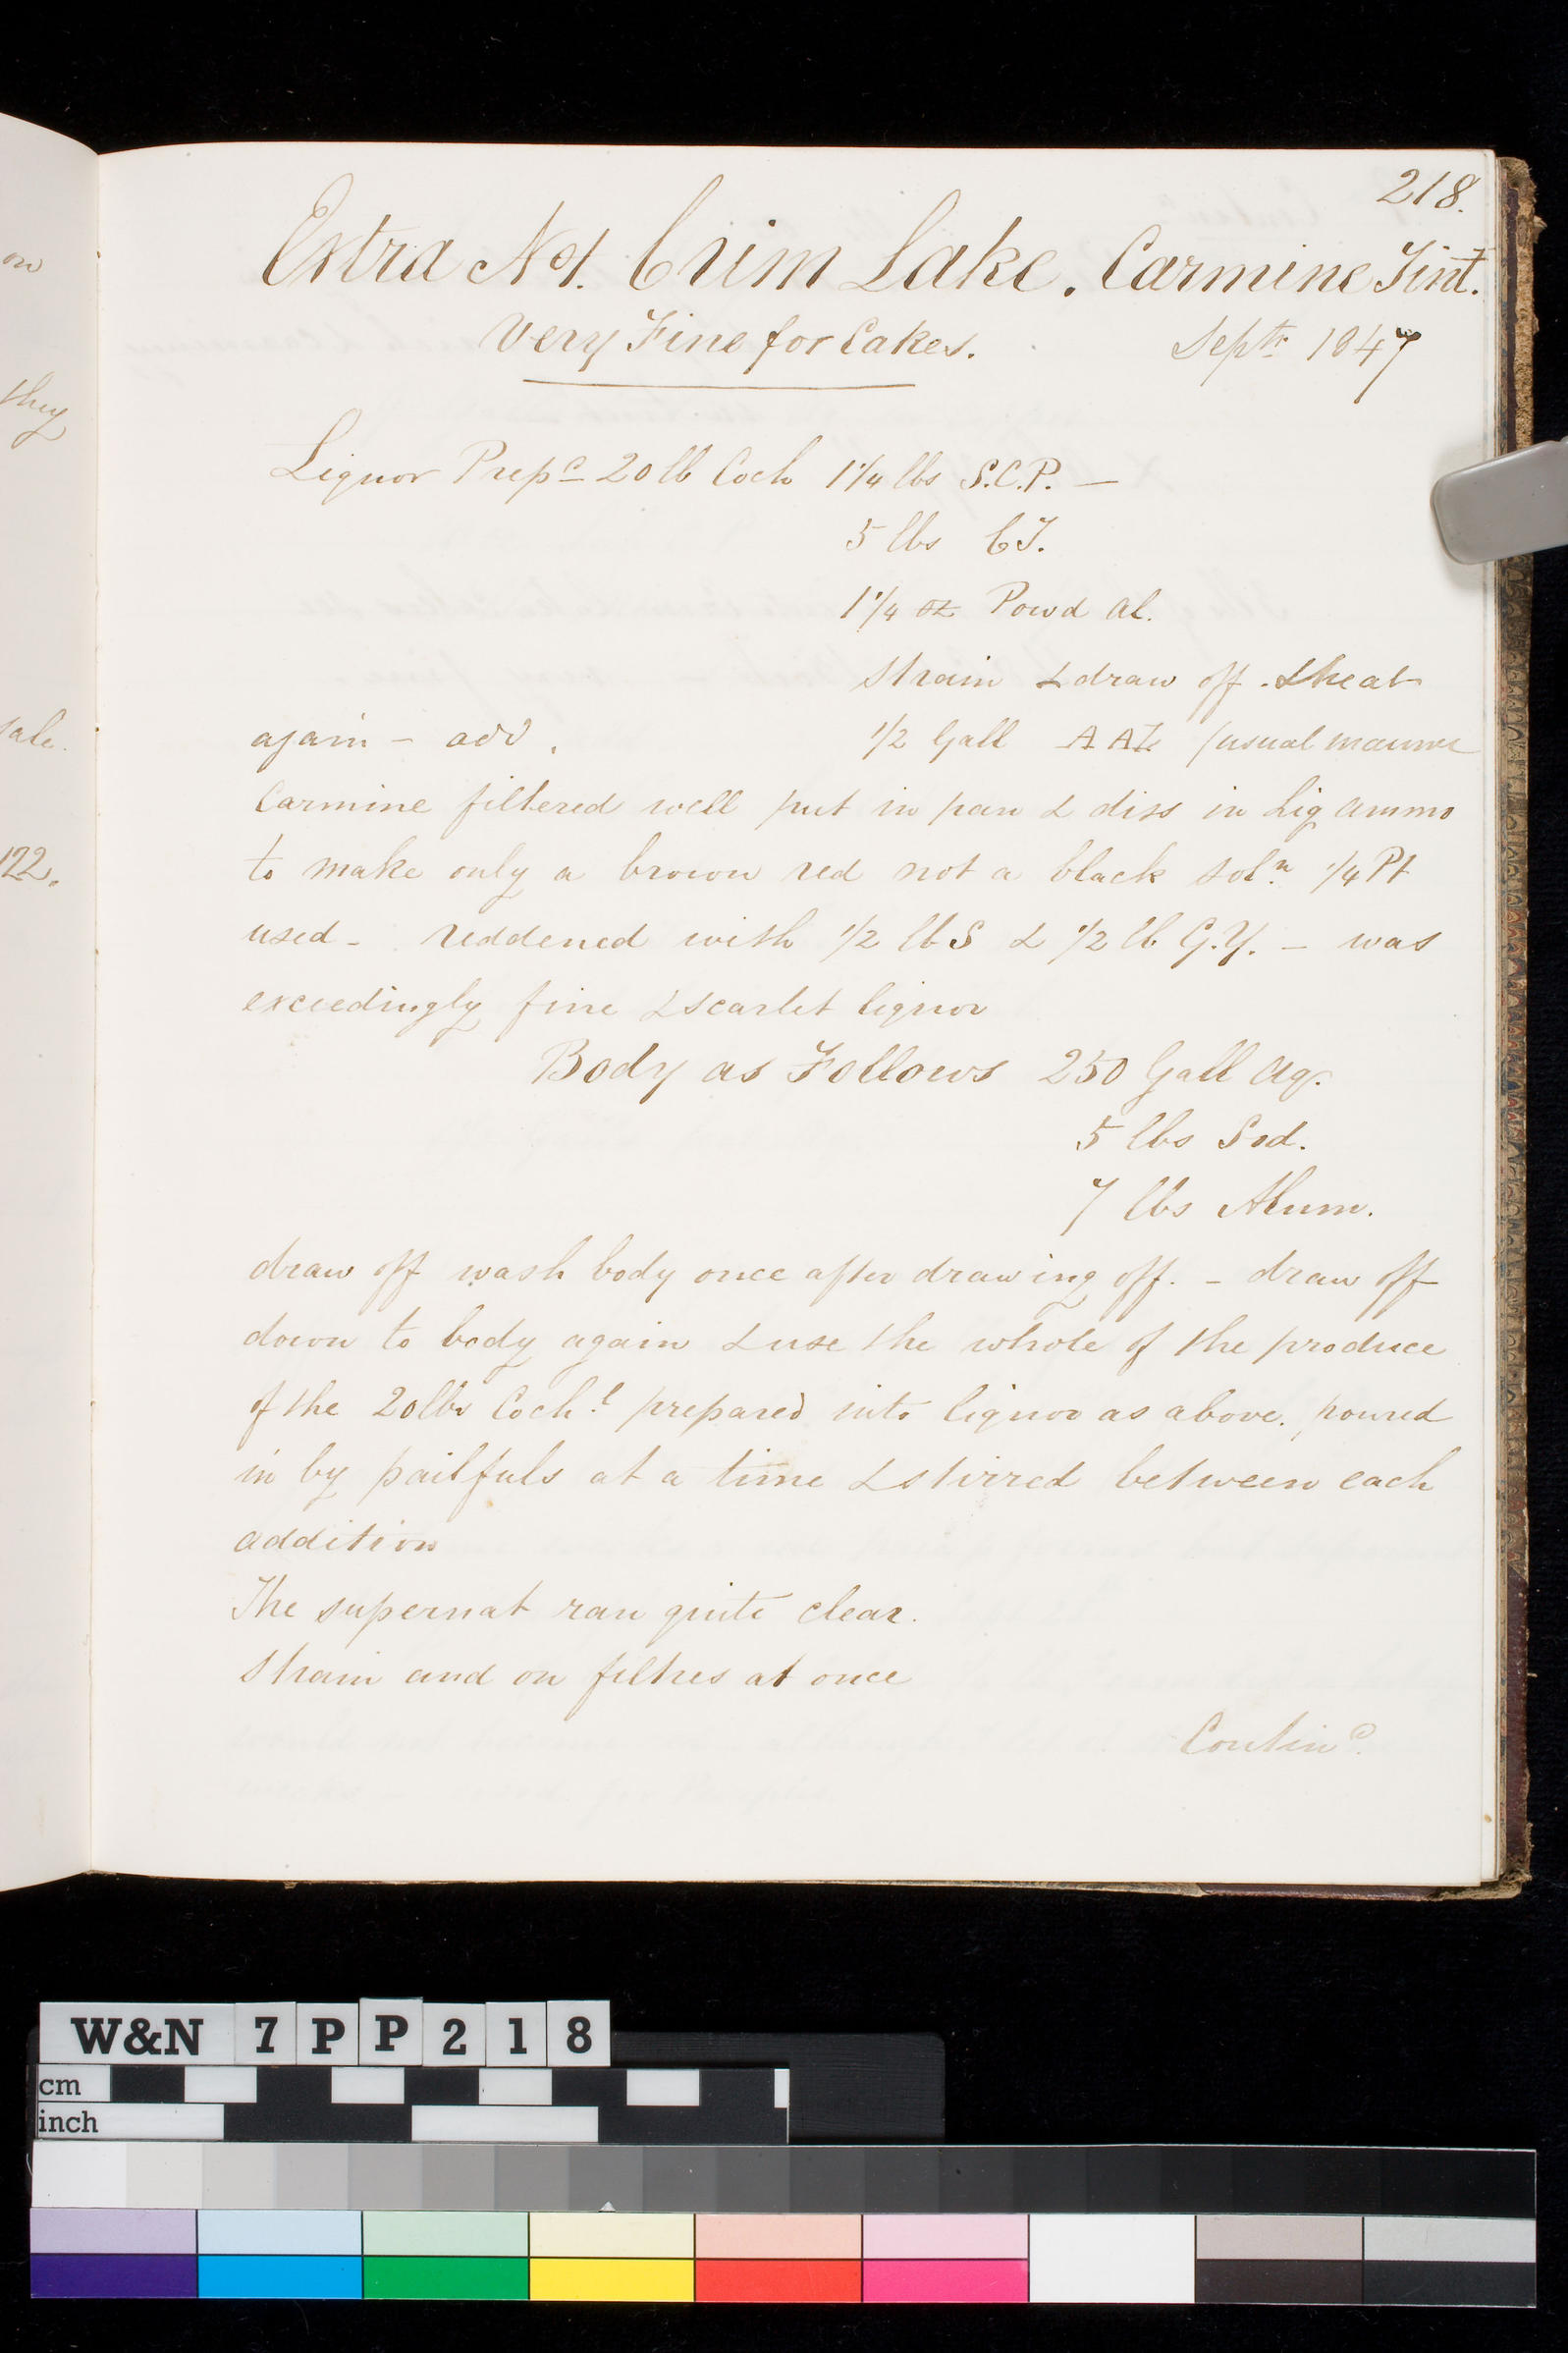 218.
Extra No1. Crim Lake. Carmine Tint.
Very Fine for Cakes. Septr 1847
Liquor Prepd 20 lb Coch 1 1/4 lbs S.C.P. —
5 lbs CT.
1 1/4 oz Powd Al.
strain & draw off. & heat
again - add. 1/2 Gall AAZ (usual manner
Carmine filtered well put in pan & diss in Liq Ammo
to make only a brown red not a black soln 1/4 Pt
used - reddened with 1/2 lb S & 1/2 lb G.Y. - was
exceedingly fine & scarlet liquor
Body as Follows 250 Gall Aq.
5 lbs Sod.
7 lbs Alum.
draw off wash body once after drawing off. - draw off
down to body again & use the whole of the produce
of the 20 lbs Cochl prepared into liquor as above. poured
in by pailfuls at a time & stirred between each
addition
The supernat ran quite clear.
Strain and on filtres at once
Contind.
on
they
sale.
122.
W&N 7PP218
cm
inch